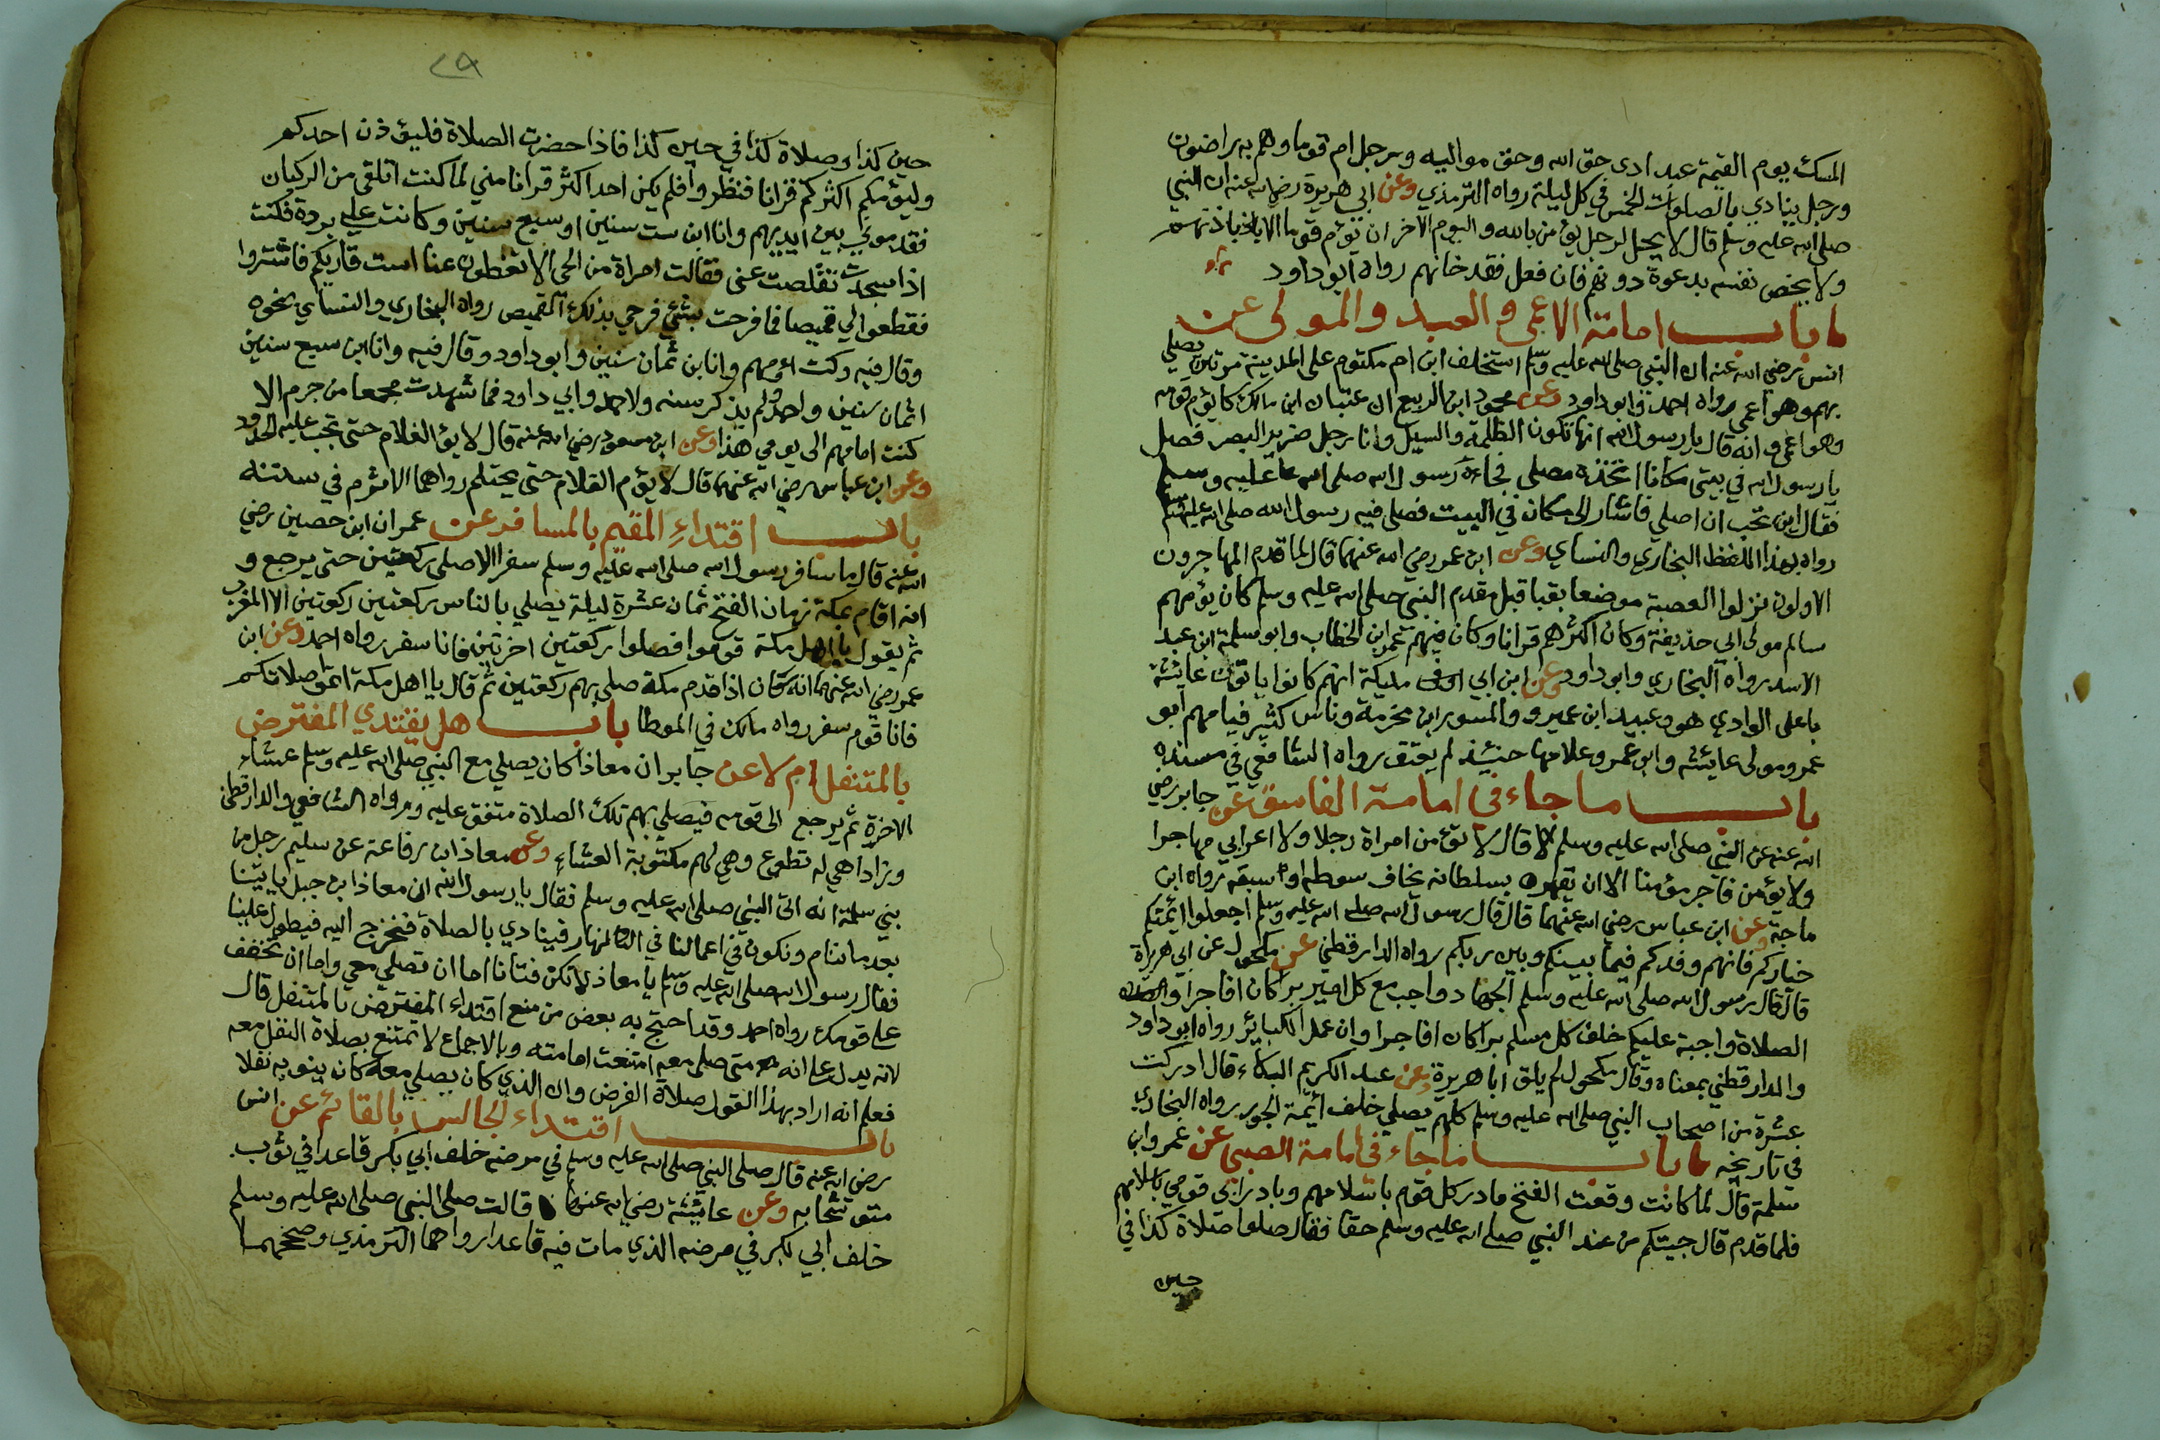 المسك يوم القيمة عبد ادى حق الله وحق مواليه ورجل ام قوما وهم به راضون
ورجل ينادي بالصلوات الخمس في كل ليلة رواه الترمذي وعن ابي هريرة رضي الله عنه ان النبي
صلى الله عليه وسلم قال لا يحل لرجل يؤمن بالله واليوم الاخر ان يؤم قوما الا باذنهم
ولا يخص نفسه بدعوة دونهم فان فعل فقد خانهم رواه ابو داود
باب امامة الاعمى والعبد والمولى عن
انس رضي الله عنه ان النبي صلى الله عليه وسلم استخلف ابن ام مكتوم على المدينة مرتين يصلي
بهم وهو اعمى رواه احمد وابو داود وعن محمود ابن الربيع ان عتبان ابن مالك كان يؤم قومه
وهو اعمى وانه قال يا رسول الله انها تكون الظلمة والسيل وانا رجل ضرير البصر فصل
يا رسول الله في بيتي مكانا اتخذه مصلى فجاءه رسول الله صلى الله عليه وسلم
فقال اين تحب ان اصلي فاشار الى مكان في البيت فصلى فيه رسول الله صلى الله عليه وسلم
رواه بهذا اللفظ البخاري والنساي وعن ابن عمر رضي الله عنهما قال لما قدم المهاجرون
الاولون نزلوا العصبة موضعا بقبا قبل مقدم النبي صلى الله عليه وسلم كان يؤمهم
سالم مولى ابي حذيفة وكان اكثرهم قرانا وكان فيهم عمر ابن الخطاب وابو سلمة ابن عبد
الاسد رواه البخاري وابو داود وعن ابن ابي مليكة انهم كانوا ياتون عايشة
باعلى الوادي هو وعبيد ابن عمير و والمسور ابن مخرمة وناس كثير فيامهم ابو
عمرو مولى عايشة وابو عمرو غلامها حينئذ لم يعتق رواه الشافعي في مسنده
باب ما جاء في امامة الفاسق عن جابر رضي
الله عنه عن النبي صلى الله عليه وسلم قال لا تؤمن امراة رجلا ولا اعرابي مهاجرا
ولا يؤمن فاجر مؤمنا الا ان يقهره بسلطانه يخاف سوطه او سيفه رواه ابن
ماجة وعن ابن عباس رضي الله عنهما قال قال رسول الله صلى الله عليه وسلم اجعلوا ائمتكم
خياركم فانهم وفدكم فيما بينكم وبين ربكم رواه الدارقطني وعن مكحول عن ابي هريرة
قال قال رسول الله صلى الله عليه وسلم الجهاد واجب مع كل امير برا كان او فاجرا
الصلاة واجبة عليكم خلف كل مسلم برا كان او فاجرا وان عمل الكبائر رواه ابو داود
والدارقطني بمعناه وقال مكحول لم يلق ابا هريرة وعن عبد الكريم البكاء قال ادركت
عشرة من اصحاب النبي صلى الله عليه وسلم كلهم يصلي خلف ائمة الجور رواه البخاري
في تاريخه باب ما جاء في امامة الصبي عن عمرو ابن
سلمة قال لما كانت وقعت الفتح بادر كل قوم باسلامهم وبادر ابي قومي باسلامهم
فلما قدم قال جيتكم من عند النبي صلى الله عليه وسلم حقا فقال صلوا صلاة كذا في
حين
٧٩
حين كذا وصلاة كذا في حين كذا فاذا حضرت الصلاة فليؤذن احدكم
وليؤمكم اكثركم قرانا فنظروا فلم يكن احد اكثر قرانا مني لما كنت اتلقى من الركبان
فقدموني بين ايديهم وانا ابن ست سنين او سبع سنين وكانت علي بردة فكنت
اذا سجدت تقلصت عني فقالت امراة من الحي الا تغطون عنا است قاريكم فاشتروا
فقطعوا لي قميصا فما فرحت بشئ فرحي بذلك القميص رواه البخاري والنساي بنحوه
وقال فيه وكنت اؤمهم وانا بن ثمان سنين وابو داود وقال فيه وانا ابن سبع سنين
اثمان سنين واحمد ولم يذكر سنه ولاحمد وابي داود فما شهدت مجمعا من جرم الا
كنت امامهم الى يومي هذا وعن ابن مسعود رضي الله عنه قال لا يؤم الغلام حتى تجب عليه الحدود
وعن ابن عباس رضي الله عنهما قال لا يؤم الغلام حتى يحتلم رواهما الاثرم في سننه
باب اقتداء المقيم بالمسافر عن عمران ابن حصين رضي
الله عنه قال ما سافر رسول الله صلى الله عليه وسلم سفرا الا صلى ركعتين حتى يرجع و
انه اقام بمكة زمان الفتح ثمان عشرة ليلة يصلي بالناس ركعتين ركعتين الا المغرب
ثم يقول يا اهل مكة قوموا فصلوا ركعتين اخرتين فانا سفر رواه احمد وعن ابن
عمر رضي الله عنهما انه كان اذا قدم مكة صلى بهم ركعتين ثم قال يا اهل مكة اتموا صلاتكم
فانا قوم سفر رواه مالك في الموطا باب هل يقتدي المفترض
بالمتنفل ام لا عن جابر ان معاذا كان يصلي مع النبي صلى الله عليه وسلم عشاء
الاخرة ثم يرجع الى قومه فيصلي بهم تلك الصلاة متفق عليه ورواه الشافعي والدارقطني
وزادا هي له تطوع وهي لهم مكتوبة العشاء وعن معاذ ابن رفاعة عن سليم رجل من
بني سلمة انه اتى النبي صلى الله عليه وسلم فقال يا رسول الله ان معاذ ابن جبل ياتينا
بعد ما ننام ونكون في اعمالنا في النهار فينادي بالصلاة فنخرج اليه فيطول علينا
فقال رسول الله صلى الله عليه وسلم يا معاذ لا تكن فتانا اما ان تصلي معي واما ان تخفف
على قومك رواه احمد وقد احتج به بعض من منع اقتداء المفترض بالمتنفل قال
لانه يدل على انه متى صلى معه امتنعت امامته وبالاجماع لا تمتنع بصلاة النفل معه
فعلم انه اراد بهذا القول صلاة الفرض وان الذي كان يصلي معه كان ينويه نفلا
باب اقتداء الجالس بالقائم عن انس
رضي الله عنه قال صلى النبي صلى الله عليه وسلم في مرضه خلف ابي بكر قاعدا في ثوب
متوشحا به وعن عايشة رضي الله عنها قالت صلى النبي صلى الله عليه وسلم
خلف ابي بكر في مرضه الذي مات فيه قاعدا رواهما الترمذي وصححهما